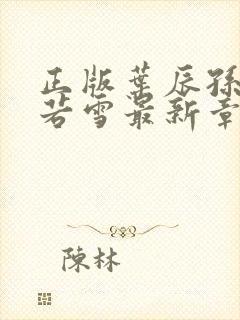 正版葉辰孫
若雪最新章
陳林